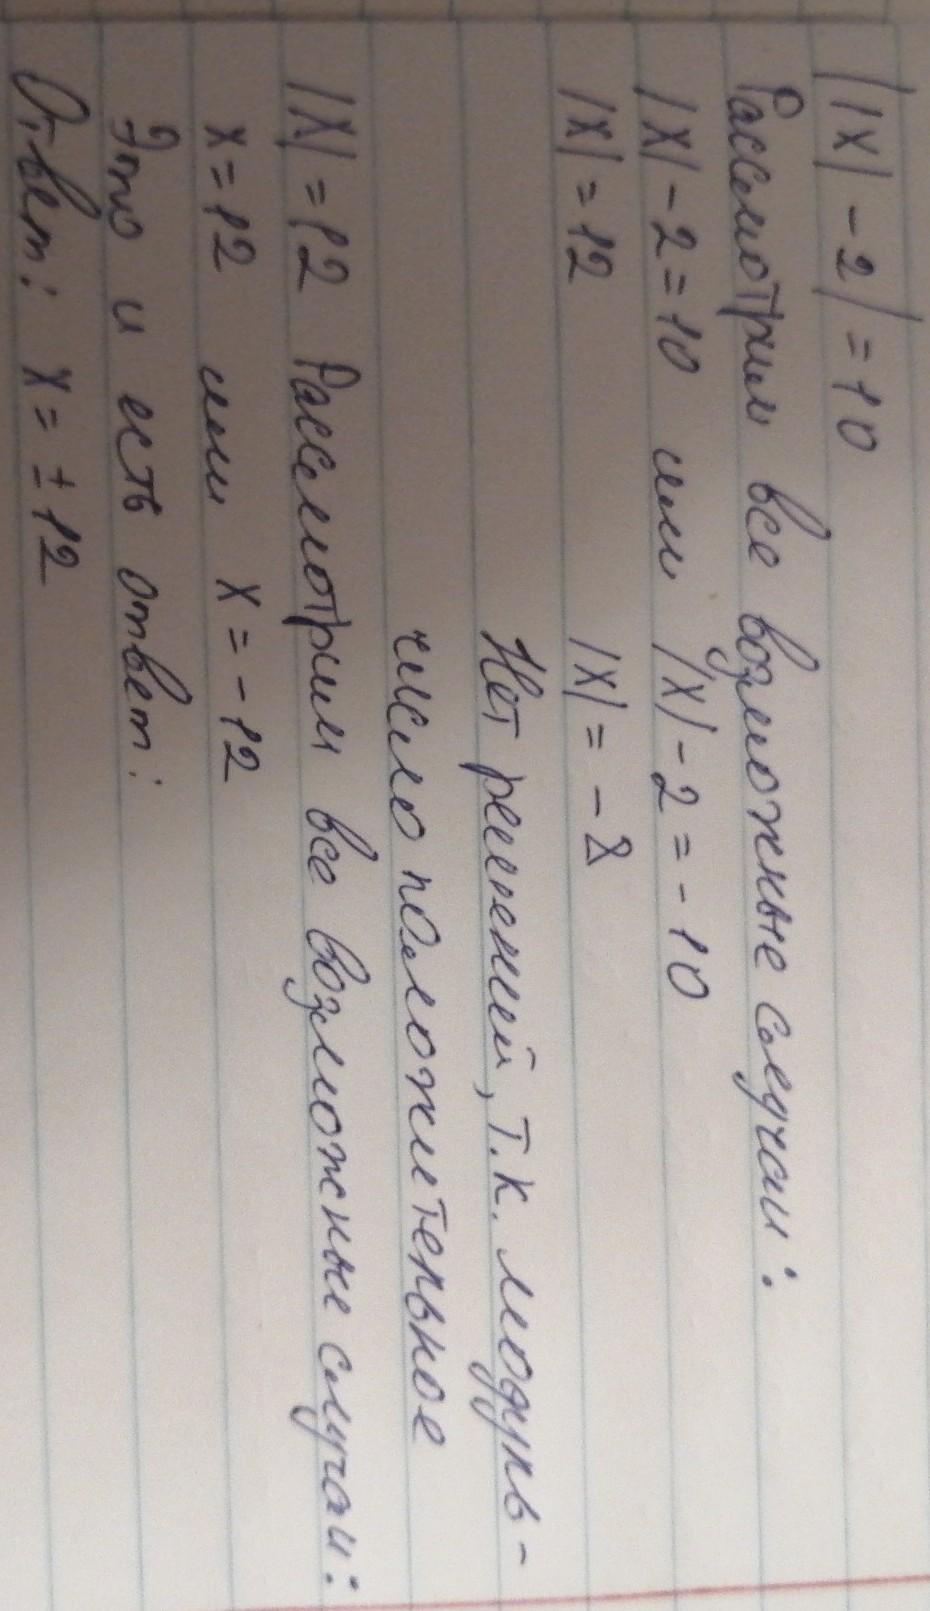 ||x|-2|=10
Рассмотрим все возможные случаи:
|x|-2=10 или |x|-2=-10
|x|=12 |x|=-8
Нет решений, т.к. модуль-
число положительное
|x|=12 Рассмотрим все возможные случаи:
x=12 или x=-12
Это и есть ответ:
Ответ: x=±12